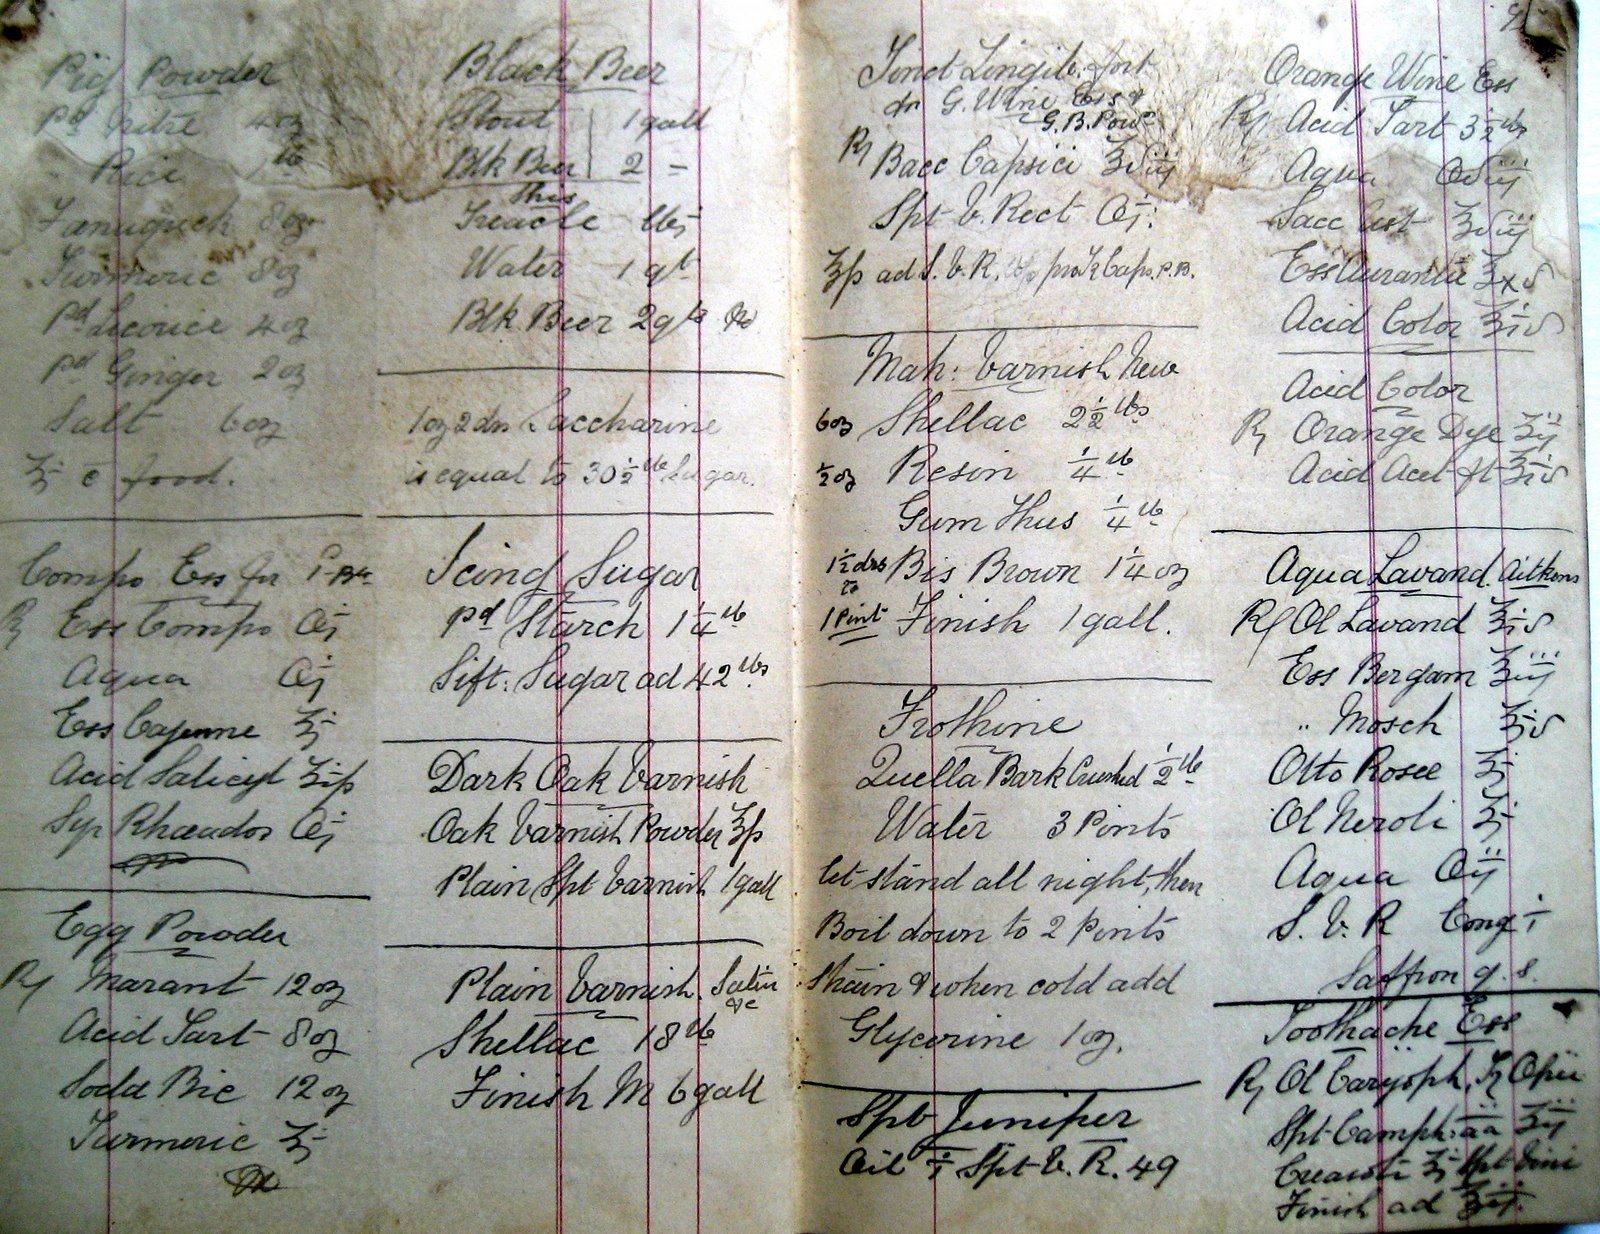 Pig Powder
Pd Nitre 4 oz
Rice lb
Fanugreek 8 oz
Turmeric 8 oz
Pd Licorice 4 oz
Pd Ginger 2 oz
Salt 6 oz
ʒj c̄ food.
Compo Ess for
℞ Ess Compo Oj
Aqua Oj
Ess Cayenne ʒj
Acid Salicyl ʒjß
Syr Rhoeados Oj
Egg Powder
℞ Marant 12 oz
Acid Tart 8 oz
Soda Bic 12 oz
Turmeric ʒj
Black Beer
Stout 1 gall
Blk Beer 2 -
this
Treacle lbj
Water 1 qt
Blk Beer 2 qts
1 oz 2 drs Saccharine
is equal to 30 1/2 lb Sugar.
Icing Sugar
Pd Starch 1 1/4 lb
Sift: Sugar ad 42 lbs
Dark Oak Varnish
Oak Varnish Powder ʒß
Plain Spt Varnish 1 gall
Plain Varnish. Satin
&c
Shellac 18 lb
Finish M 6 gall
Tinct Zingib. fort
for G. Wine Ess &
G.B. Powr
℞ Bacc Capsici ℥viij
Spt V. Rect Oj:
ʒß ad S.V.R. Caps. P.B.
Mah: Varnish New
6 oz Shellac 2 1/2 lbs
1/2 oz Resin 1/4 lb
Gum Thus 1/4 lb
1 1/2 drs Bis Brown 1 1/4 oz
to
1 Pint Finish 1 gall.
Frothine
Quella Bark Crushed 1/2 lb
Water 3 Pints
let stand all night, then
Boil down to 2 Pints
Strain & when cold add
Glycerine 1 oz.
Spt Juniper
Oil 1 Spt V. R. 49
Orange Wine Ess
℞ Acid Tart 3 1/2 lbs
Aqua Oviij
Sacc Ust ℥viij
Ess Aurantii ℥xv
Acid Color ℥iv
Acid Color
℞ Orange Dye ℥ij
Acid Acet ft ℥iv
Aqua Lavand. Aitkens
℞ Ol Lavand ℥iv
Ess Bergam ℥iij
" Mosch ℥iv
Otto Rosee ʒj
Ol Neroli ʒj
Aqua Oij
S. V. R Cong i
Saffron q. s.
Toothache Ess
℞ Ol Caryoph, Tr Opii
Spt Camph: āā ʒij
Creasoti ʒj Spt Vini
Finish ad